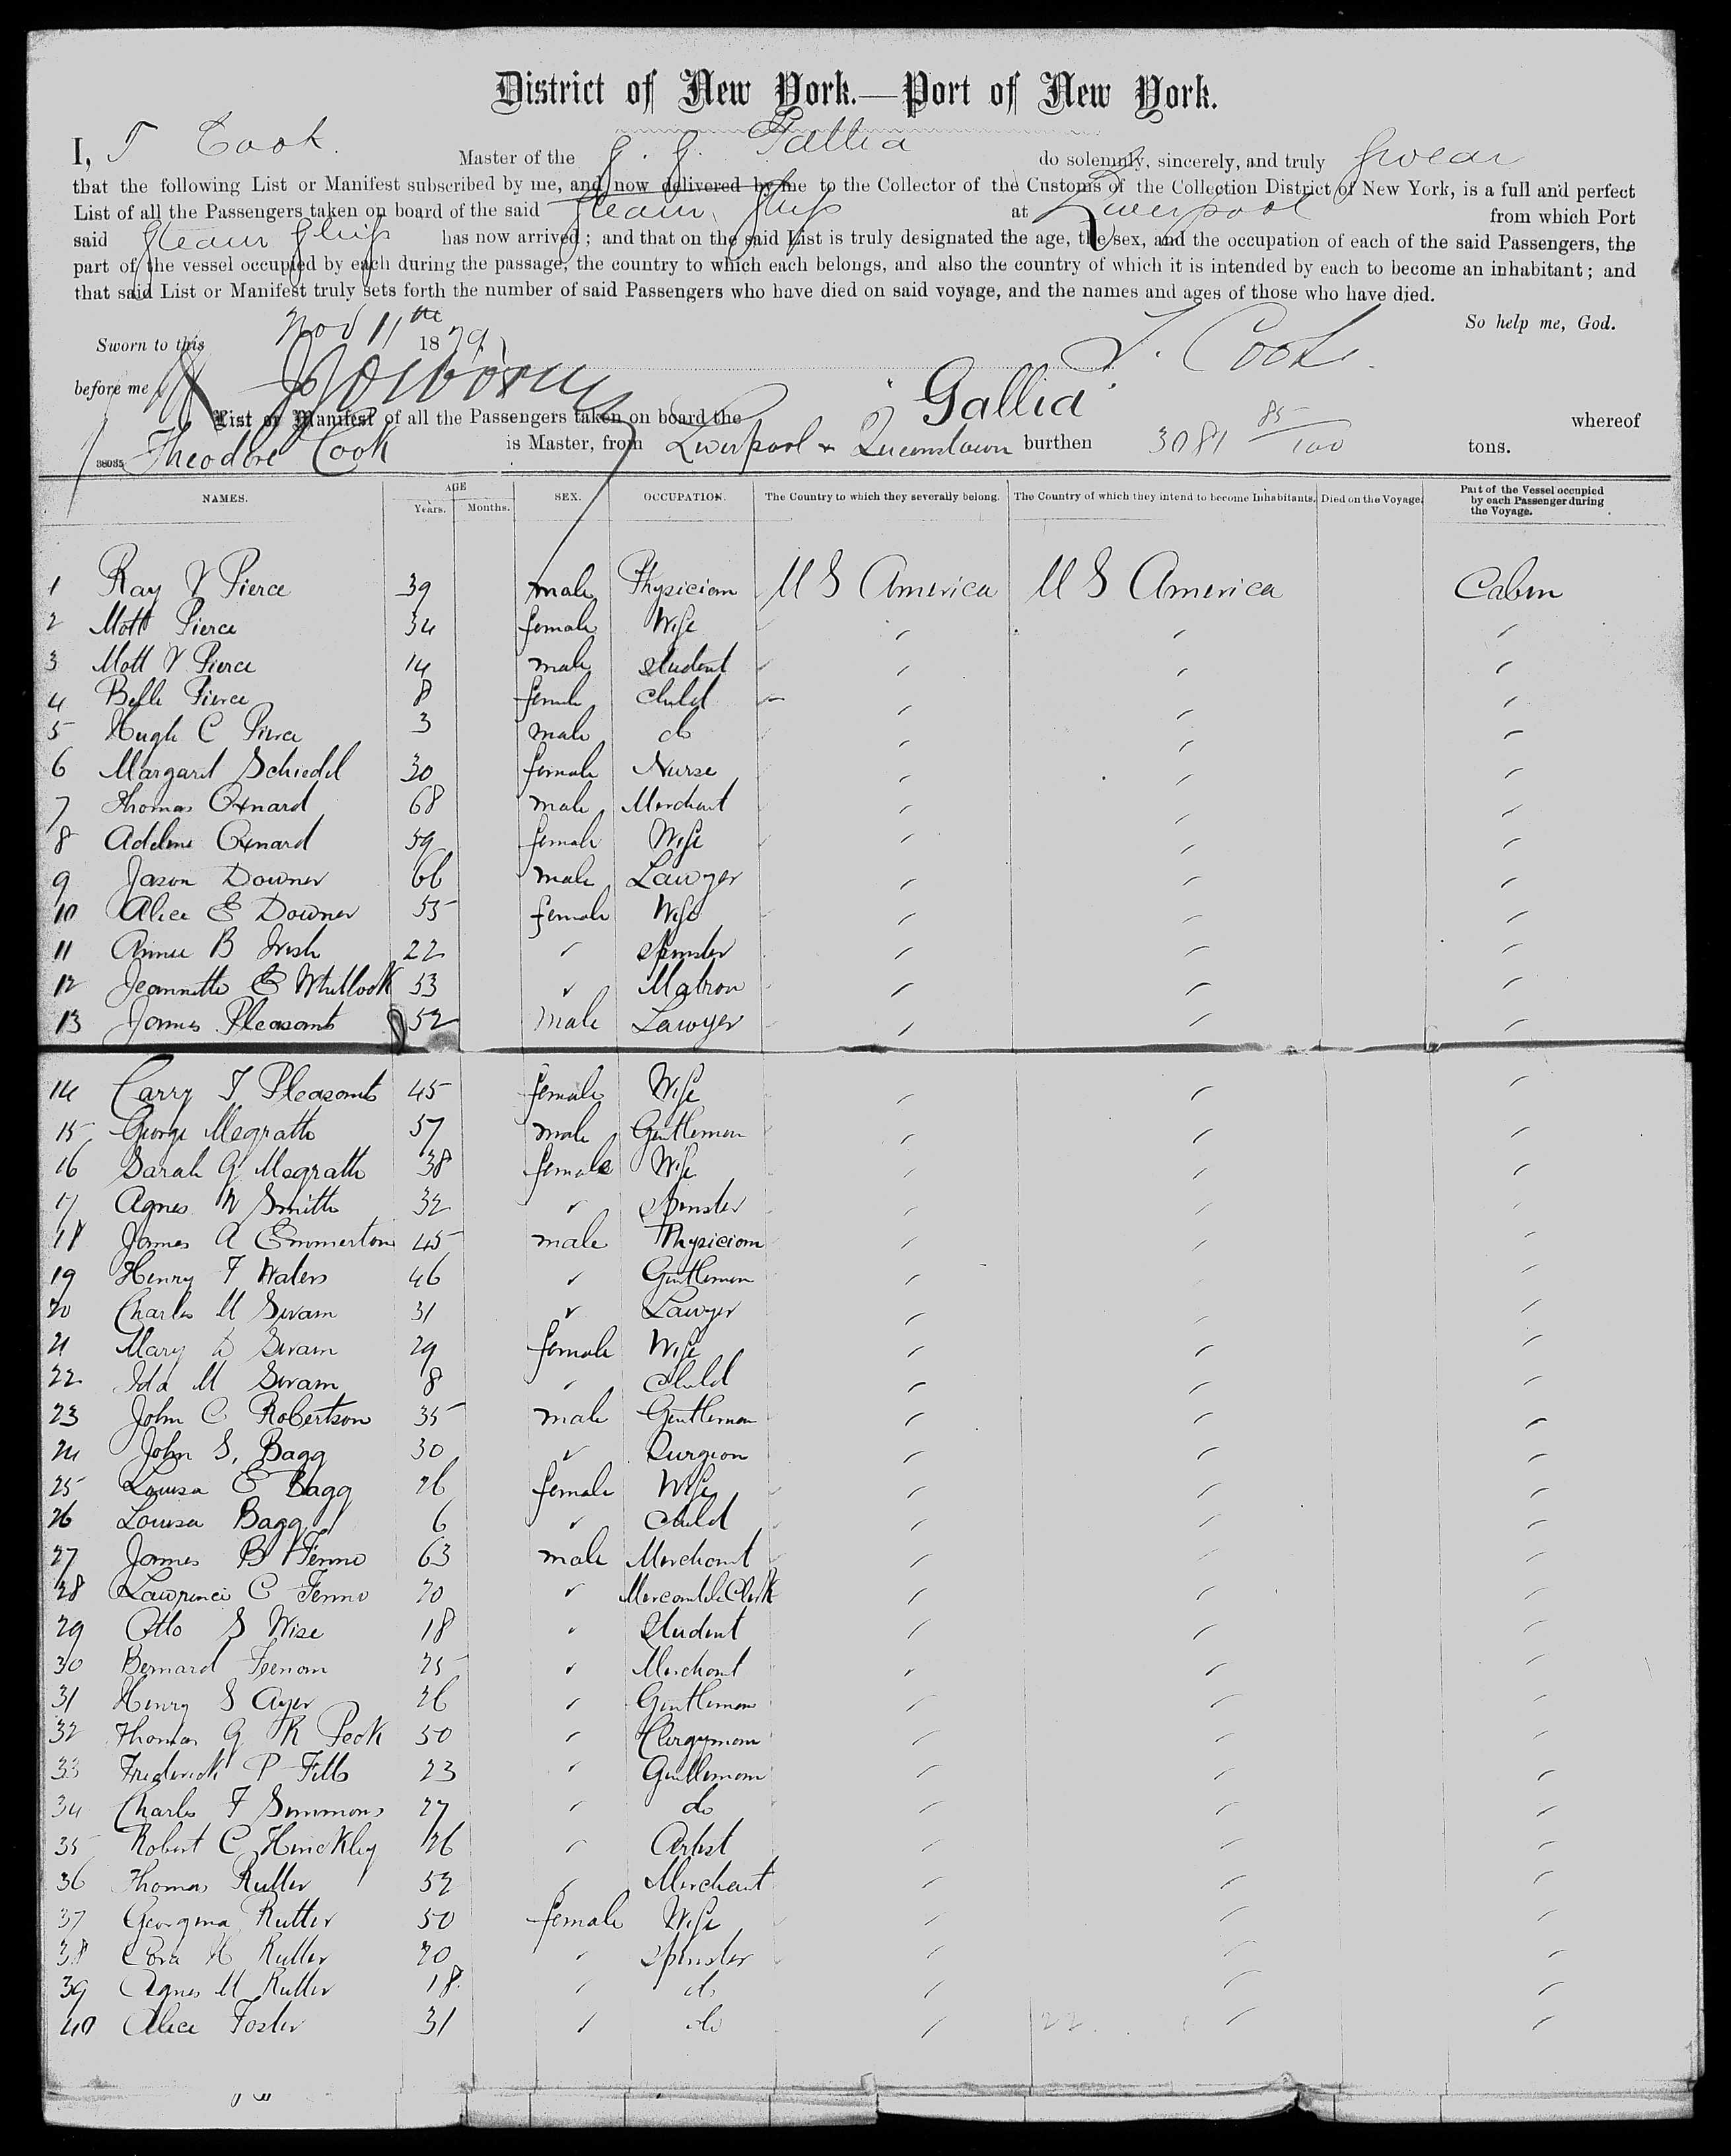 District of New York.—Port of New York.
I, T Cook. Master of the S. S. Gallia do solemnly, sincerely, and truly swear
that the following List or Manifest subscribed by me, and now delivered by me to the Collector of the Customs of the Collection District of New York, is a full and perfect
List of all the Passengers taken on board of the said Steam Ship at Liverpool from which Port
said Steam Ship has now arrived; and that on the said List is truly designated the age, the sex, and the occupation of each of the said Passengers, the
part of the vessel occupied by each during the passage, the country to which each belongs, and also the country of which it is intended by each to become an inhabitant; and
that said List or Manifest truly sets forth the number of said Passengers who have died on said voyage, and the names and ages of those who have died.
So help me, God.
Sworn to this Nov 11th 1879
T. Cook
before me
List or Manifest of all the Passengers taken on board the "Gallia" whereof
38035 Theodore Cook is Master, from Liverpool & Queenstown burthen 3081 85/100 tons.
NAMES. AGE Years. Months. SEX. OCCUPATION. The Country to which they severally belong. The Country of which they intend to become Inhabitants. Died on the Voyage. Part of the Vessel occupied by each Passenger during the Voyage.
1 Ray V Pierce 39 male Physician U S America U S America Cabin
2 Mott Pierce 34 female Wife " " "
3 Mott V Pierce 14 male Student " " "
4 Belle Pierce 8 female Child " " "
5 Hugh C Pierce 3 male do " " "
6 Margaret Schiedel 30 female Nurse " " "
7 Thomas Oxnard 68 male Merchant " " "
8 Adeline Oxnard 59 female Wife " " "
9 Jason Downer 66 male Lawyer " " "
10 Alice E Downer 55 female Wife " " "
11 Annie B Irish 22 " Spinster " " "
12 Jeannette E Whitlook 53 " Matron " " "
13 James Pleasants 52 Male Lawyer " " "
14 Carry T Pleasants 45 female Wife " " "
15 George Megrath 57 male Gentleman " " "
16 Sarah G Megrath 38 female Wife " " "
17 Agnes W Smith 32 " Spinster " " "
18 James A Emmerton 45 male Physician " " "
19 Henry F Waters 46 " Gentleman " " "
20 Charles M Swam 31 " Lawyer " " "
21 Mary D Swam 29 female Wife " " "
22 Ida M Swam 8 " Child " " "
23 John C Robertson 35 male Gentleman " " "
24 John S. Bagg 30 " Surgeon " " "
25 Louisa E Bagg 26 female Wife " " "
26 Louisa Bagg 6 " Child " " "
27 James B Fenno 63 male Merchant " " "
28 Lawrence C Fenno 20 " Mercantile Clerk " " "
29 Otto S Wise 18 " Student " " "
30 Bernard 25 " Merchant " " "
31 Henry S Ayer 26 " Gentleman " " "
32 Thomas G R Peck 50 " Clergyman " " "
33 Frederick P 23 " Gentleman " " "
34 Charles F Simmons 27 " do " " "
35 Robert C Hinckley 26 " Artist " " "
36 Thomas Rutter 52 " Merchant " " "
37 Georgina Rutter 50 female Wife " " "
38 Cora H Rutter 20 " Spinster " " "
39 Agnes M Rutter 18 " do " " "
40 Alice Foster 31 " do " " "